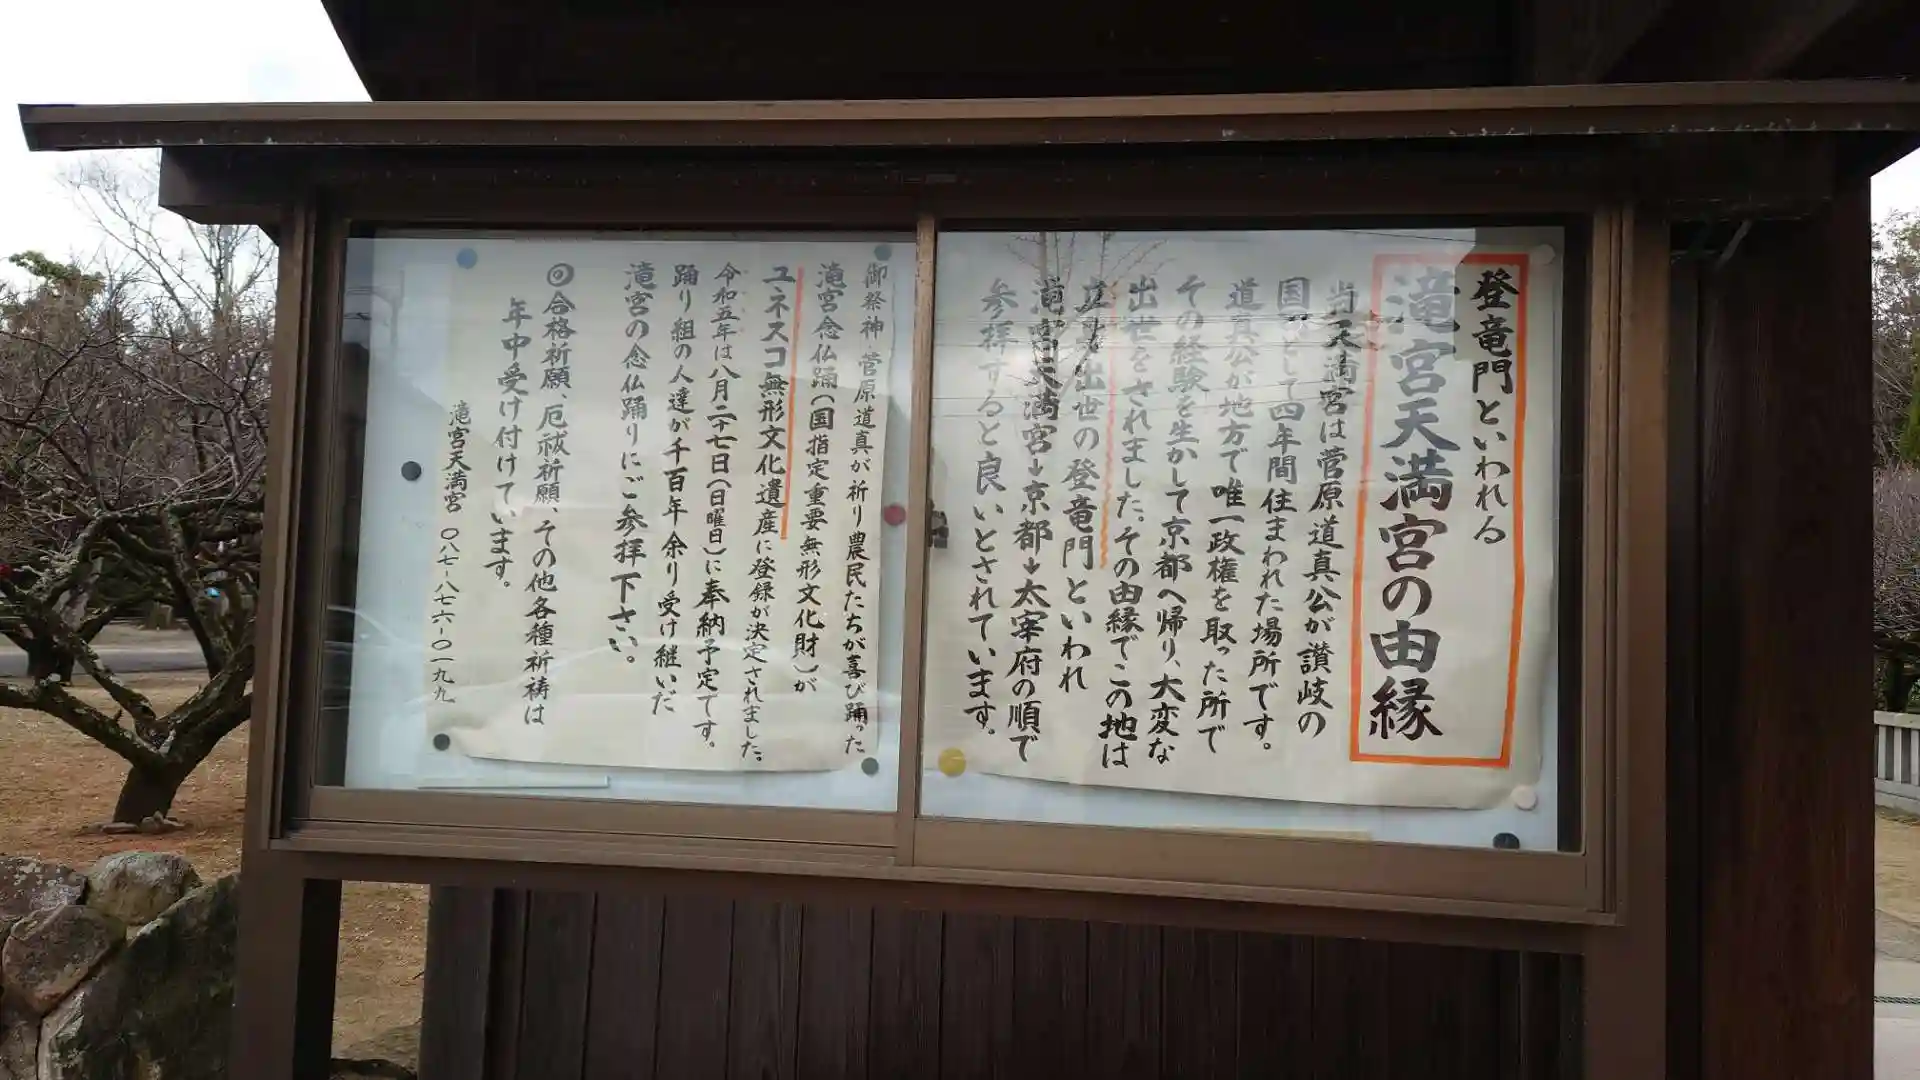 登竜門といわれる
滝宮天満宮の由縁
当天満宮は菅原道真公が讃岐の
国司として四年間住まわれた場所です。
道真公が地方で唯一政権を取った所で
その経験を生かして京都へ帰り、大変な
出世をされました。その由縁でこの地は
立身出世の登竜門といわれ
滝宮天満宮→京都→太宰府の順で
参拝すると良いとされています。
御祭神 菅原道真が祈り農民たちが喜び踊った
滝宮念仏踊(国指定重要無形文化財)が
ユネスコ無形文化遺産に登録が決定されました。
令和五年は八月二十七日(日曜日)に奉納予定です。
踊り組の人達が千百年余り受け継いだ
滝宮の念仏踊りにご参拝下さい。
◎合格祈願、厄祓祈願、その他各種祈祷は
年中受け付けています。
滝宮天満宮 〇八七-八七六-〇一九九